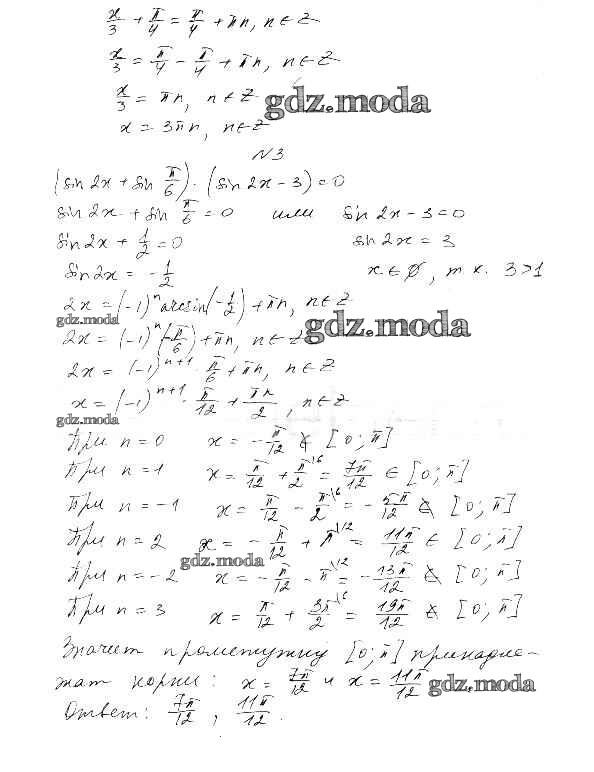 x/3 + π/4 = π/4 + πn, n ∈ Z
x/3 = π/4 − π/4 + πn, n ∈ Z
x/3 = πn, n ∈ Z gdz.moda
x = 3πn, n ∈ Z
N3
(sin 2x + sin π/6) · (sin 2x − 3) = 0
sin 2x + sin π/6 = 0 или sin 2x − 3 = 0
sin 2x + 1/2 = 0 sin 2x = 3
sin 2x = −1/2 x ∈ ∅, т.к. 3 > 1
2x = (−1)^n arcsin(−1/2) + πn, n ∈ Z
gdz.moda gdz.moda
2x = (−1)^n (−π/6) + πn, n ∈ Z
2x = (−1)^(n+1) · π/6 + πn, n ∈ Z
x = (−1)^(n+1) · π/12 + πn/2, n ∈ Z
gdz.moda
При n = 0 x = −π/12 ∉ [0; π]
При n = 1 x = π/12 + π/2^\6 = 7π/12 ∈ [0; π]
При n = −1 x = π/12 − π/2^\6 = −5π/12 ∉ [0; π]
При n = 2 x = −π/12 + π^\12 = 11π/12 ∈ [0; π]
gdz.moda
При n = −2 x = −π/12 − π^\12 = −13π/12 ∉ [0; π]
При n = 3 x = π/12 + 3π/2^\6 = 19π/12 ∉ [0; π]
Значит промежутку [0; π] принадле-
жат корни: x = 7π/12 и x = 11π/12 gdz.moda
Ответ: 7π/12, 11π/12.